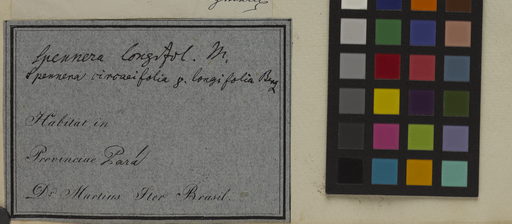 Spennera longifol. M.
Spennera circaeifolia β. longifolia
Habitat in
Provinciae Pará
Dr. Martius Iter Brasil.